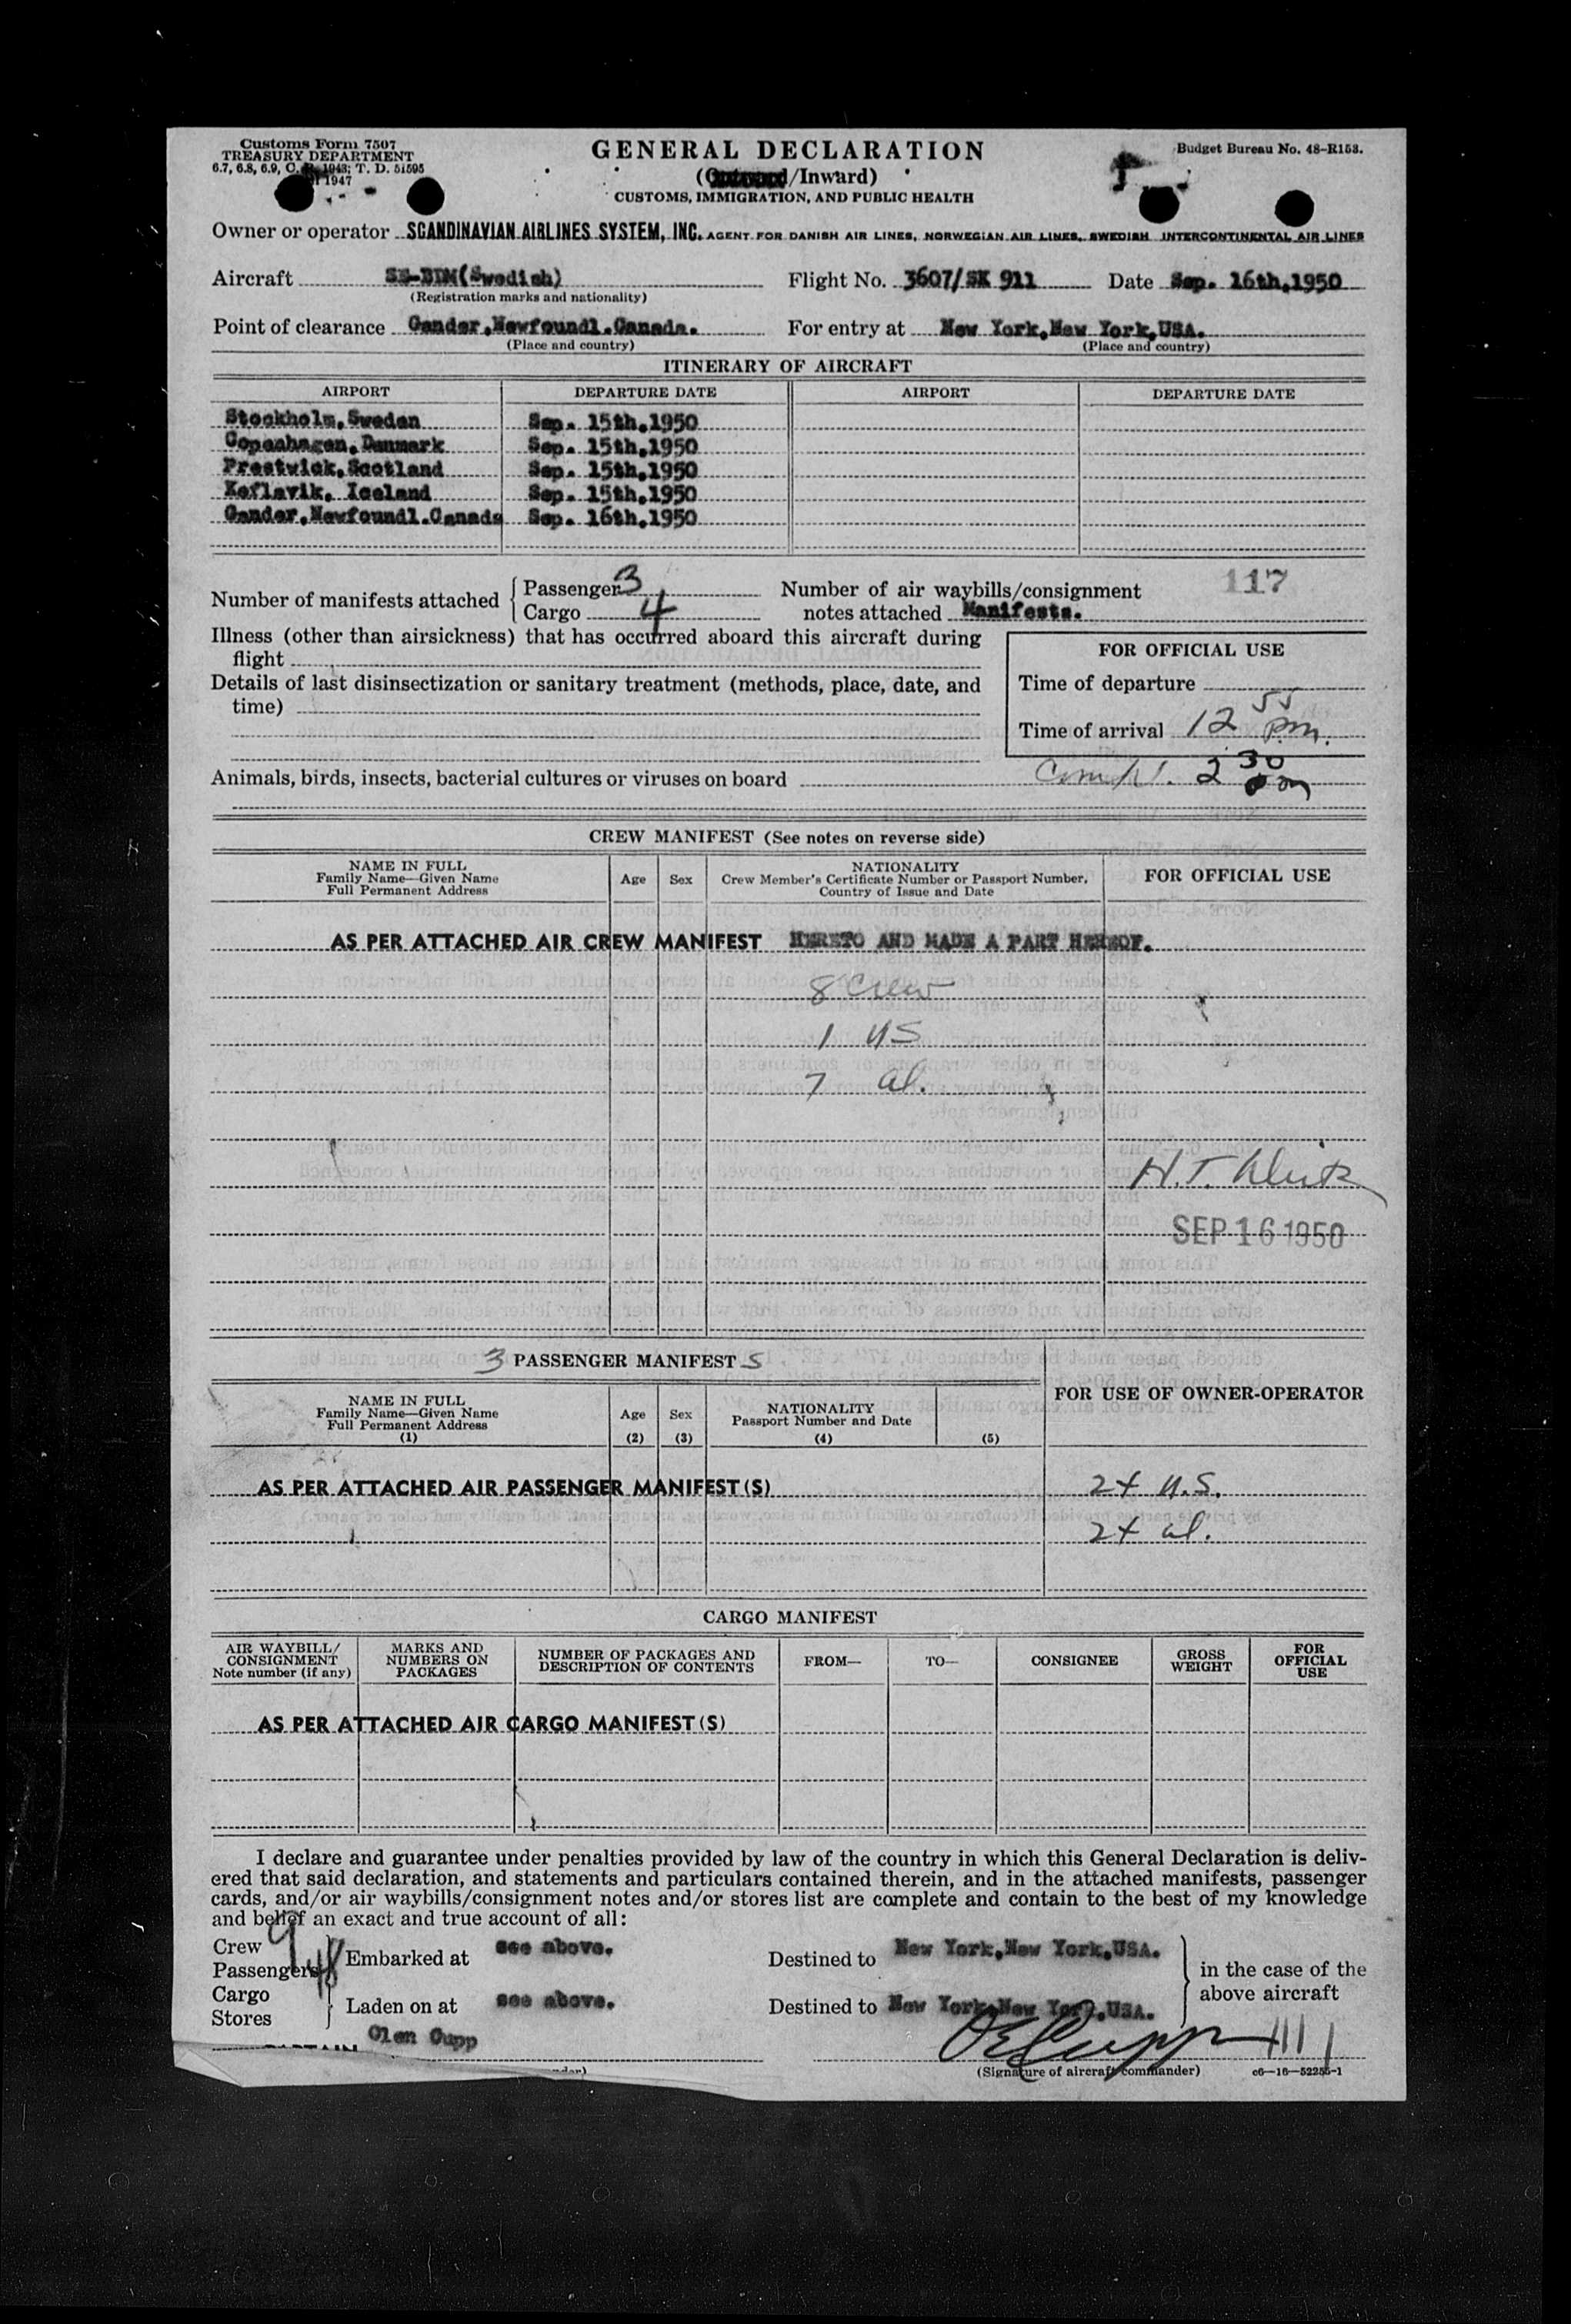 Customs Form 7507
TREASURY DEPARTMENT
6.7, 6.8, 6.9, C. R. 1943; T. D. 51595
1947
GENERAL DECLARATION
(Outward/Inward)
CUSTOMS, IMMIGRATION, AND PUBLIC HEALTH
Budget Bureau No. 48-R153.
Owner or operator SCANDINAVIAN AIRLINES SYSTEM, INC. AGENT FOR DANISH AIR LINES, NORWEGIAN AIR LINES, SWEDISH INTERCONTINENTAL AIR LINES
Aircraft SE-BDM(Swedish) Flight No. 3607/SK 911 Date Sep. 16th,1950
(Registration marks and nationality)
Point of clearance Gander,Newfoundl.Canada. For entry at New York,New York,USA.
(Place and country) (Place and country)
ITINERARY OF AIRCRAFT
AIRPORT DEPARTURE DATE AIRPORT DEPARTURE DATE
Stockholm,Sweden Sep. 15th,1950
Copenhagen,Denmark Sep. 15th,1950
Prestwick,Scotland Sep. 15th,1950
Keflavik, Iceland Sep. 15th,1950
Gander,Newfoundl.Canada Sep. 16th,1950
Number of manifests attached { Passenger 3 Number of air waybills/consignment 117
Cargo 4 notes attached Manifests.
Illness (other than airsickness) that has occurred aboard this aircraft during
flight
Details of last disinsectization or sanitary treatment (methods, place, date, and
time)
FOR OFFICIAL USE
Time of departure
Time of arrival 12 55 pm.
Animals, birds, insects, bacterial cultures or viruses on board
2 30 pm
CREW MANIFEST (See notes on reverse side)
NAME IN FULL
Family Name—Given Name
Full Permanent Address
Age Sex
NATIONALITY
Crew Member's Certificate Number or Passport Number,
Country of Issue and Date
FOR OFFICIAL USE
AS PER ATTACHED AIR CREW MANIFEST HERETO AND MADE A PART HEREOF.
8 Crew
1 US
7 al.
H.T.
SEP 16 1950
3 PASSENGER MANIFEST S
NAME IN FULL
Family Name—Given Name
Full Permanent Address
(1)
Age
(2)
Sex
(3)
NATIONALITY
Passport Number and Date
(4)
(5)
FOR USE OF OWNER-OPERATOR
AS PER ATTACHED AIR PASSENGER MANIFEST(S) 24 U.S.
24 al.
CARGO MANIFEST
AIR WAYBILL/
CONSIGNMENT
Note number (if any)
MARKS AND
NUMBERS ON
PACKAGES
NUMBER OF PACKAGES AND
DESCRIPTION OF CONTENTS
FROM— TO— CONSIGNEE
GROSS
WEIGHT
FOR
OFFICIAL
USE
AS PER ATTACHED AIR CARGO MANIFEST(S)
I declare and guarantee under penalties provided by law of the country in which this General Declaration is deliv-
ered that said declaration, and statements and particulars contained therein, and in the attached manifests, passenger
cards, and/or air waybills/consignment notes and/or stores list are complete and contain to the best of my knowledge
and belief an exact and true account of all:
Crew 9
Passengers 48
Embarked at see above. Destined to New York,New York,USA.
Cargo
Stores
Laden on at see above. Destined to New York,New York,USA.
in the case of the
above aircraft
CAPTAIN Glen Cupp
(Signature of aircraft commander) c6—16—52255-1